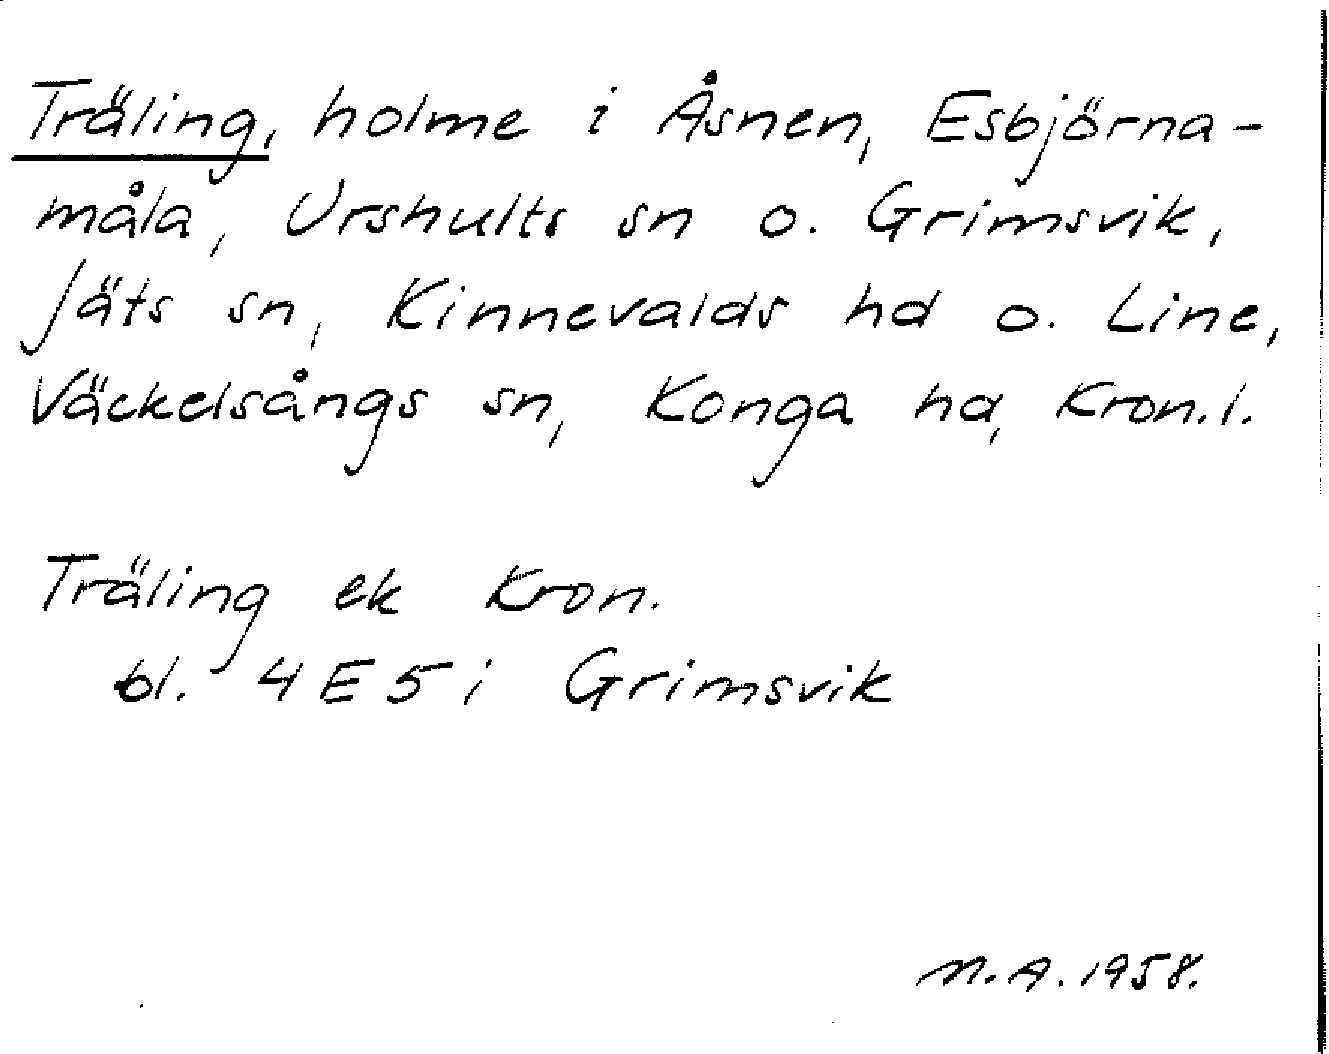 Träling, holme i Åsnen, Esbjörna-
måla, Urshults sn o. Grimsvik,
Jäts sn, Kinnevalds hd o. Line,
Väckelsångs sn, Konga hd, Kron. l.
Träling ek Kron.
bl. 4 E 5 i Grimsvik
M. A. 1958.